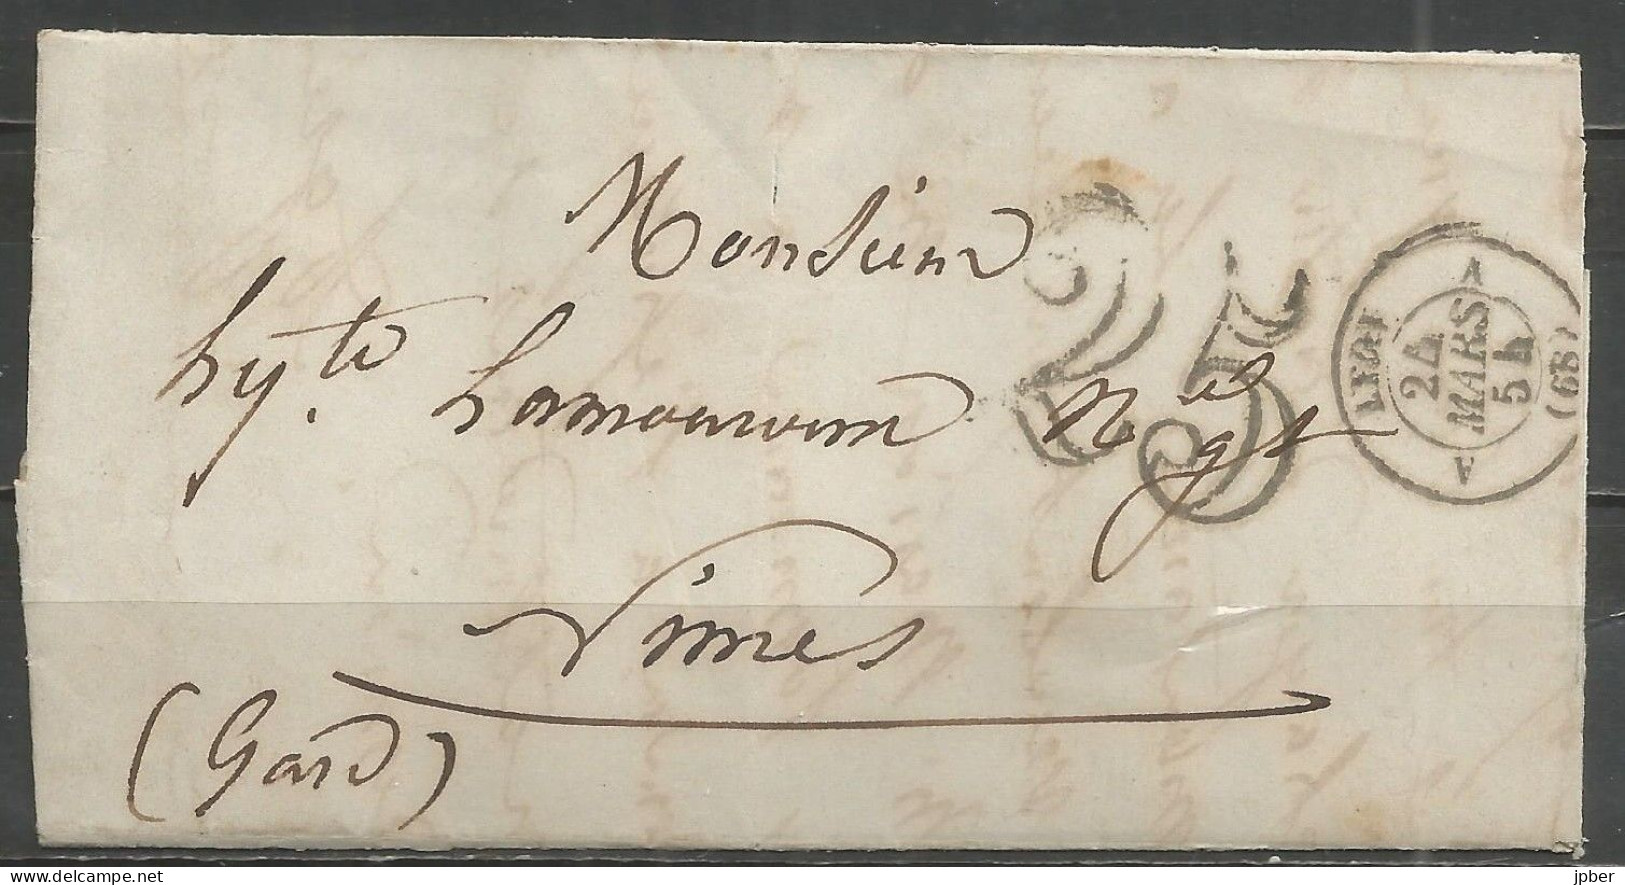 Monsieur
hyte Lamouroux Négt
Nimes
(Gard)
25
LYON (68)
A
24
MARS
5 h
A
delcampe.net
jpber